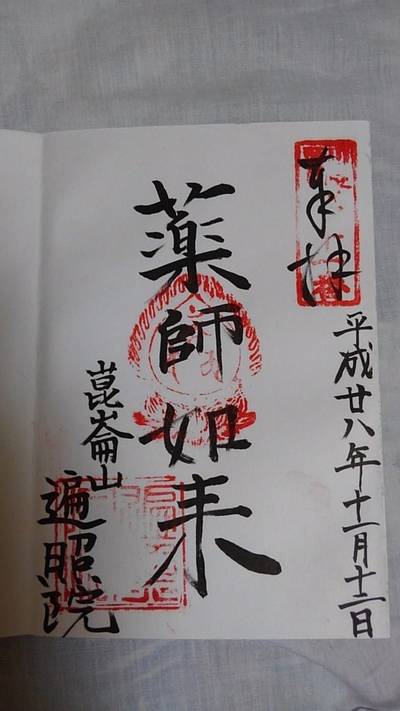 奉拝
平成廿八年十一月十二日
薬師如来
崑崙山
遍照院